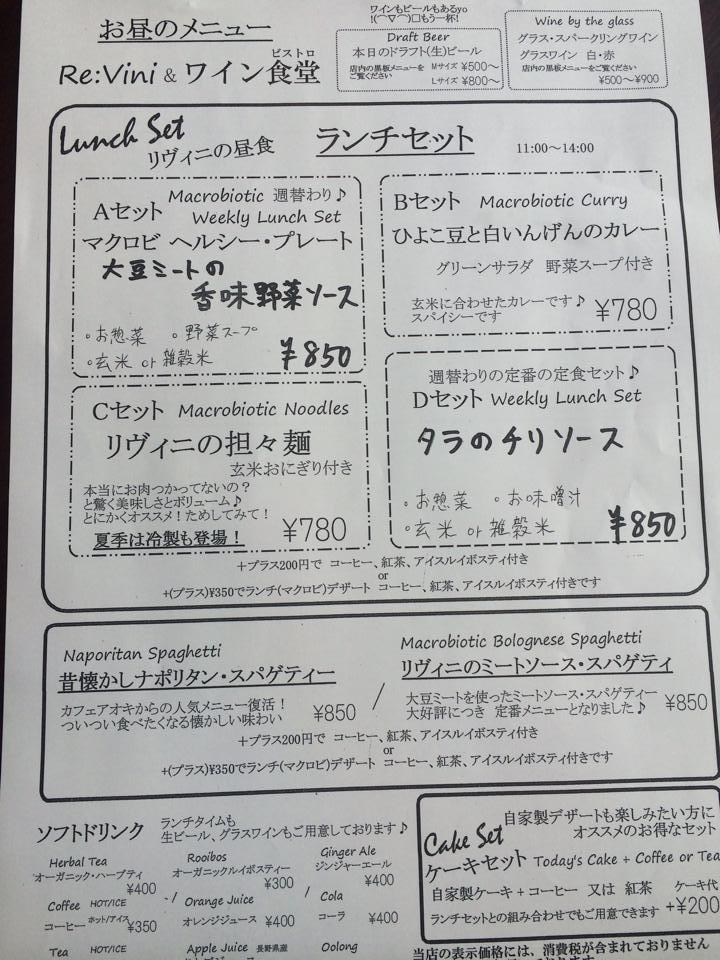 お昼のメニュー
Re:Vini & ワイン食堂
ビストロ
ワインもビールもあるyo
!(￣▽￣)□もう一杯!
Draft Beer
本日のドラフト(生)ビール
店内の黒板メニューを
ご覧ください
Mサイズ ¥500～
Lサイズ ¥800～
Wine by the glass
グラス・スパークリングワイン
グラスワイン 白・赤
店内の黒板メニューをご覧ください
¥500～¥900
Lunch Set
リヴィニの昼食
ランチセット
11:00～14:00
Aセット Macrobiotic 週替わり♪
Weekly Lunch Set
マクロビ ヘルシー・プレート
大豆ミートの
香味野菜ソース
・お惣菜 ・野菜スープ
・玄米 or 雑穀米
¥850
Bセット Macrobiotic Curry
ひよこ豆と白いんげんのカレー
グリーンサラダ 野菜スープ付き
玄米に合わせたカレーです♪
スパイシーです
¥780
Cセット Macrobiotic Noodles
リヴィニの担々麺
玄米おにぎり付き
本当にお肉つかってないの？
と驚く美味しさとボリューム♪
とにかくオススメ！ためしてみて！
夏季は冷製も登場！
¥780
週替わりの定番の定食セット♪
Dセット Weekly Lunch Set
タラのチリソース
・お惣菜 ・お味噌汁
・玄米 or 雑穀米
¥850
＋プラス200円で コーヒー、紅茶、アイスルイボスティ付き
or
+(プラス)¥350でランチ(マクロビ)デザート コーヒー、紅茶、アイスルイボスティ付きです
Naporitan Spaghetti
昔懐かしナポリタン・スパゲティー
カフェアオキからの人気メニュー復活！
ついつい食べたくなる懐かしい味わい
¥850
/
Macrobiotic Bolognese Spaghetti
リヴィニのミートソース・スパゲティ
大豆ミートを使ったミートソース・スパゲティー
大好評につき 定番メニューとなりました♪
¥850
＋プラス200円で コーヒー、紅茶、アイスルイボスティ付き
or
+(プラス)¥350でランチ(マクロビ)デザート コーヒー、紅茶、アイスルイボスティ付きです
ソフトドリンク
ランチタイムも
生ビール、グラスワインもご用意しております♪
Herbal Tea
オーガニック・ハーブティ
¥400
Coffee HOT/ICE
コーヒー ホット/アイス ¥350
Tea HOT/ICE
Rooibos
オーガニックルイボスティー
¥300
/ Orange Juice
オレンジジュース ¥400
Apple Juice 長野県産
Ginger Ale
ジンジャーエール
¥400
/ Cola
コーラ ¥400
Oolong
Cake Set
自家製デザートも楽しみたい方に
オススメのお得なセット
ケーキセット Today's Cake + Coffee or Tea
自家製ケーキ＋コーヒー 又は 紅茶
ケーキ代
+¥200
ランチセットとの組み合わせでもご用意できます
当店の表示価格には、消費税が含まれておりません